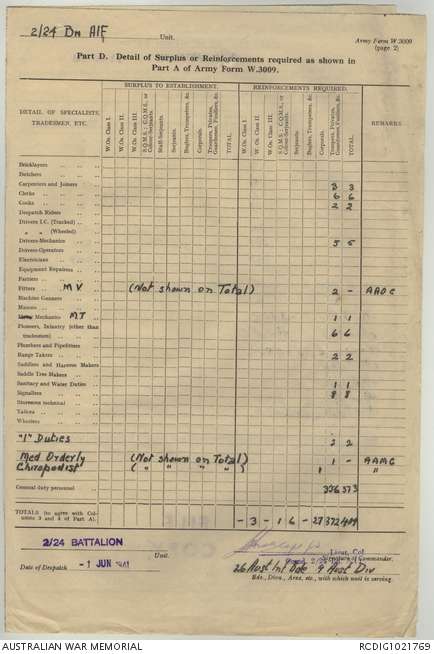 2/24 Bn AIF Unit. Army Form W.3009
(page 2)
Part D. Detail of Surplus or Reinforcements required as shown in
Part A of Army Form W.3009.
SURPLUS TO ESTABLISHMENT. REINFORCEMENTS REQUIRED.
DETAIL OF SPECIALISTS, TRADESMEN, ETC. W.Os. Class I. W.Os. Class II. W.Os. Class III. S.Q.M.S.; C.Q.M.S., or Colour-Serjeants. Staff-Serjeants. Serjeants. Buglers, Trumpeters, &c. Corporals. Troopers, Privates, Guardsmen, Fusiliers, &c. TOTAL. W.Os. Class I. W.Os. Class II. W.Os. Class III. S.Q.M.S.; C.Q.M.S., or Colour-Serjeants. Serjeants. Buglers, Trumpeters, &c. Corporals. Troopers, Privates, Guardsmen, Fusiliers, &c. TOTAL. REMARKS
Bricklayers
Butchers
Carpenters and Joiners 3 3
Clerks 6 6
Cooks 2 2
Despatch Riders
Drivers I.C. (Tracked)
" " (Wheeled)
Drivers-Mechanics 5 5
Drivers-Operators
Electricians
Equipment Repairers
Farriers
Fitters MV (Not shown on Total) 2 - AAOC
Machine Gunners
Masons
Mechanics MT 1 1
Pioneers, Infantry (other than tradesmen) 6 6
Plumbers and Pipefitters
Range Takers 2 2
Saddlers and Harness Makers
Saddle Tree Makers
Sanitary and Water Duties 1 1
Signallers 8 8
Storemen technical
Tailors
Wheelers
"I" Duties 2 2
Med Orderly (Not shown on Total) 1 - AAMC
Chiropodist ( " " " " ) 1 "
General duty personnel 336 373
TOTALS (to agree with Columns 3 and 4 of Part A). - 3 - 1 6 - 27 372 409
2/24 BATTALION Unit. Lieut. Col.
Signature of Commander.
Date of Despatch - 1 JUN 1941 26 Aust Inf Bde 9 Aust Div
Bde., Divn., Area, etc., with which unit is serving.
AUSTRALIAN WAR MEMORIAL RCDIG1021769